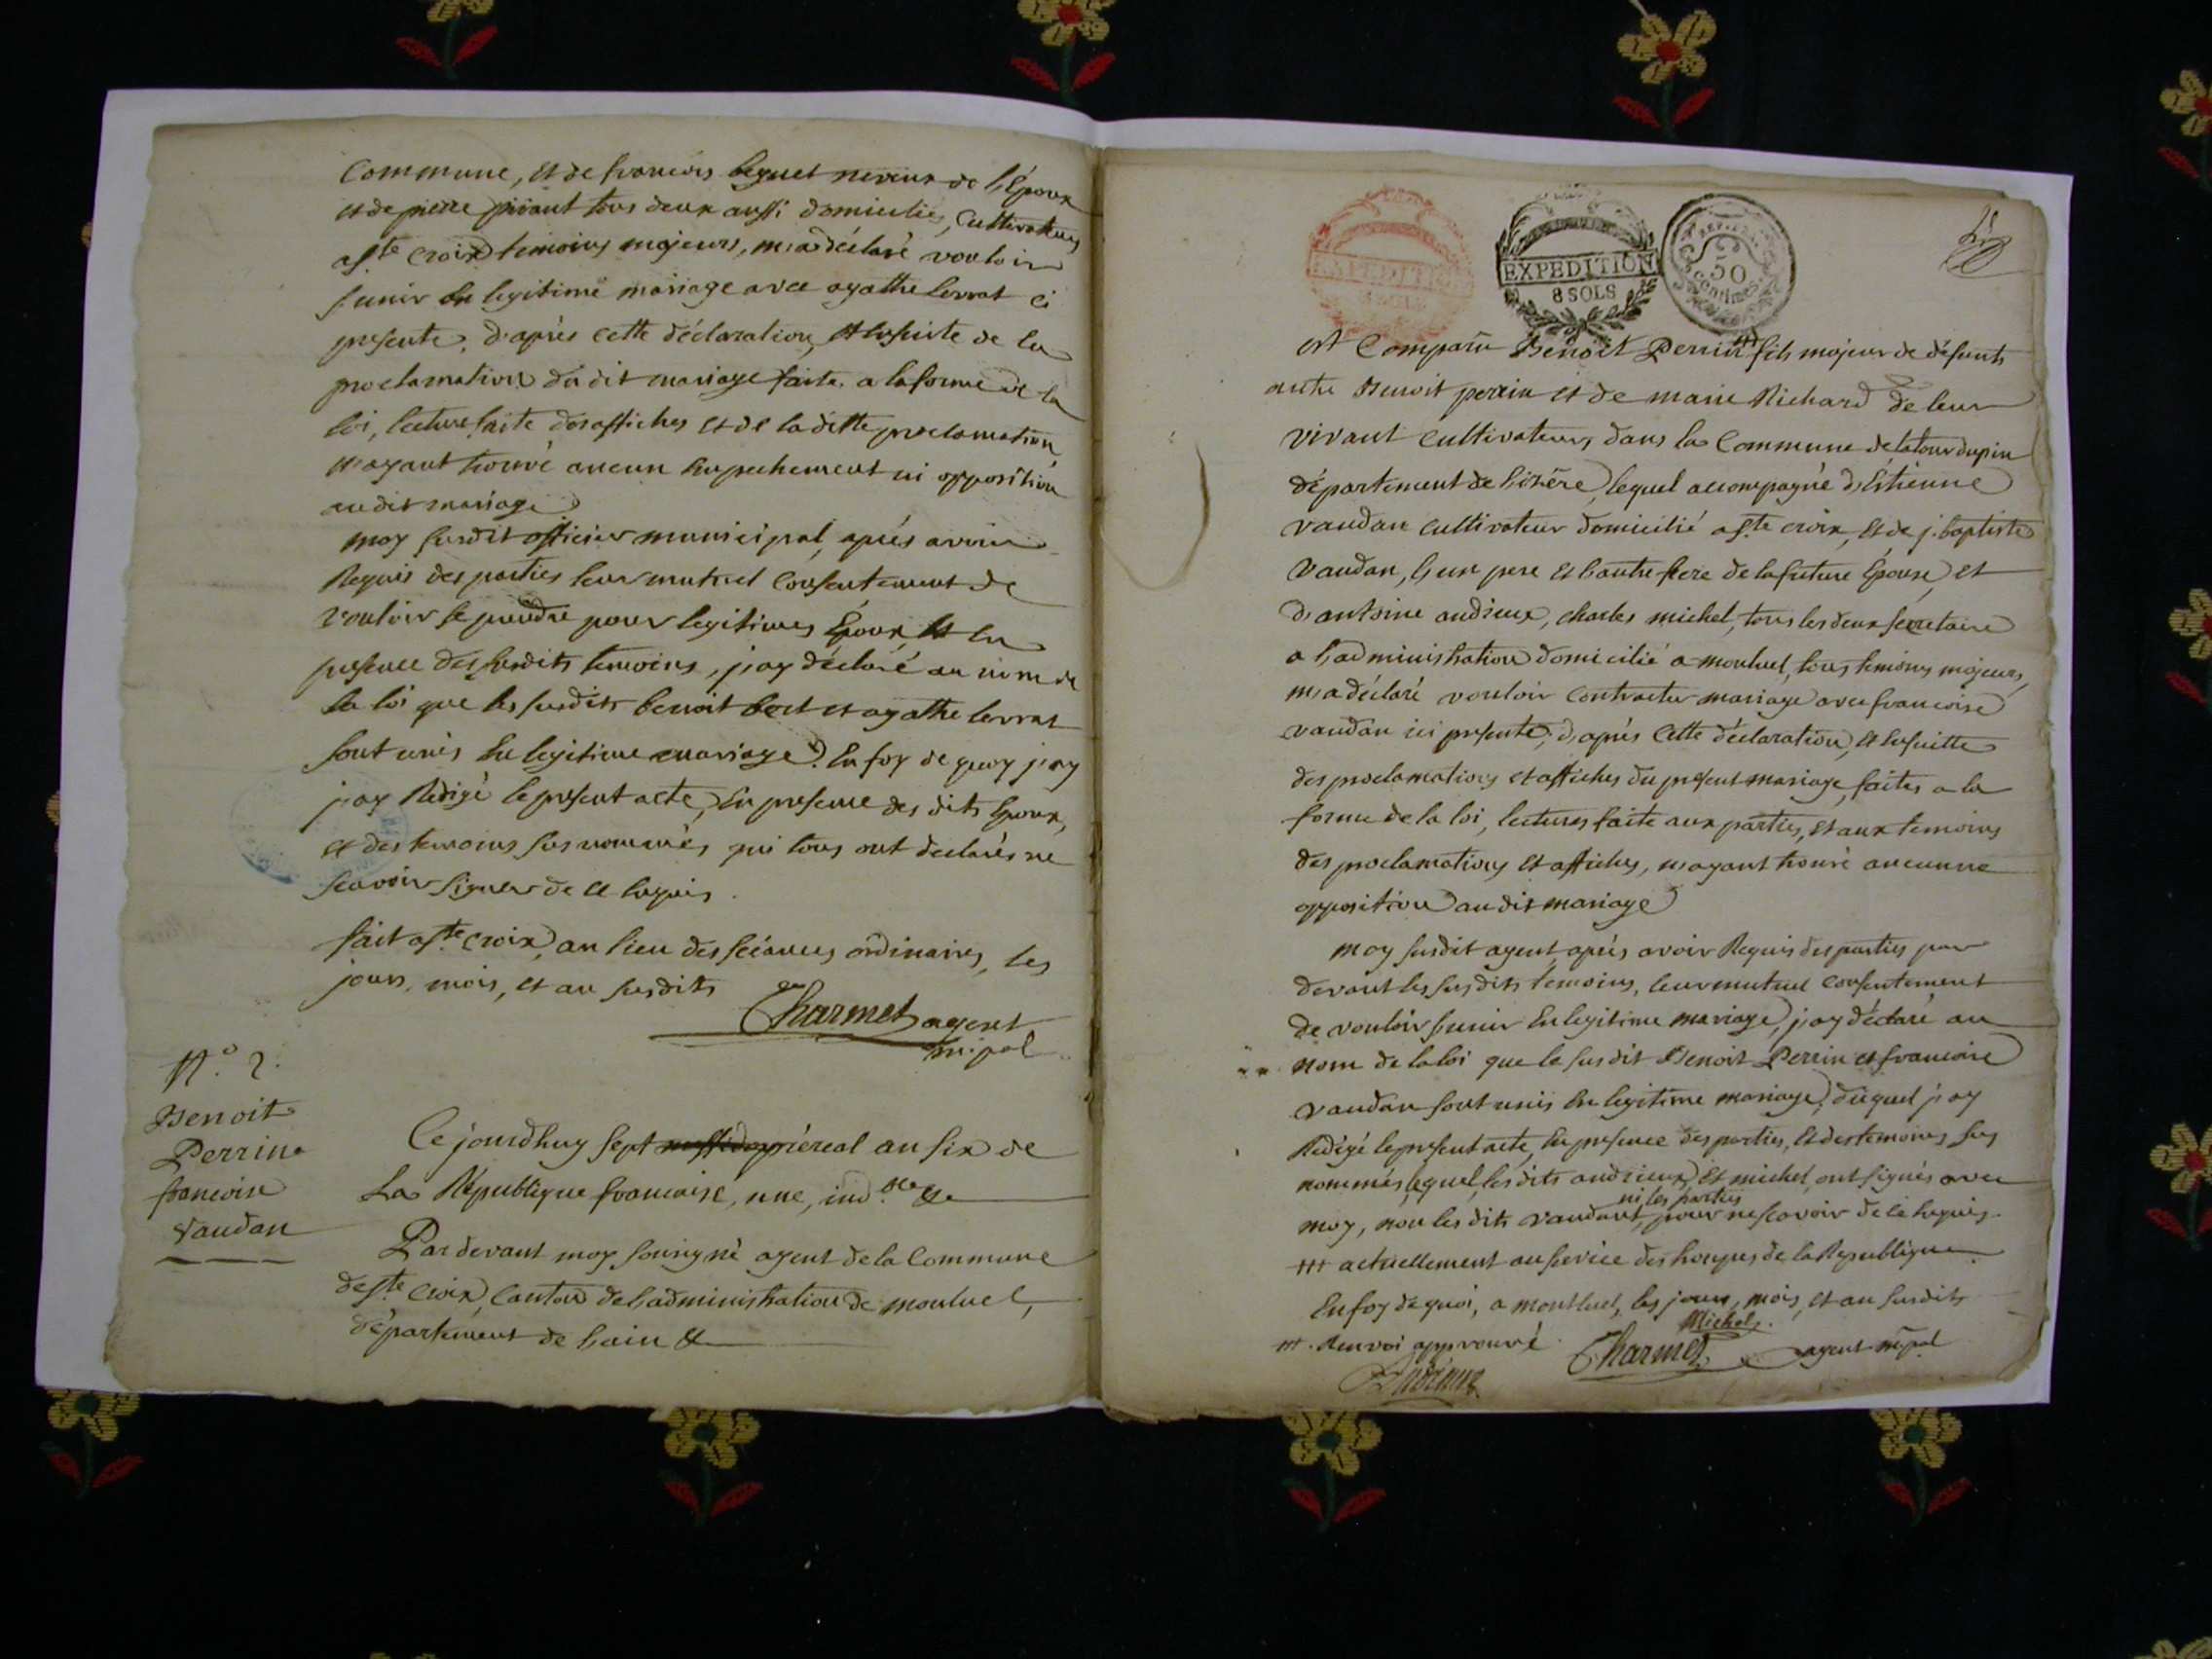 Commune, et de francois beguet neveux de l'Epoux
et de pierre pivant tous deux aussi domiciliés, Cultivateurs
a ste croix temoins majeurs, m'a déclaré vouloir
s'unir en legitime mariage avec agathe levrat ci
presente, d'après cette déclaration, et ensuite de la
proclamation du dit mariage faite a la forme de la
loi, lecture faite des affiches et de la ditte proclamation
n'ayant trouvé aucun Empechement ni opposition
au dit mariage
moy susdit officier municipal, après avoir
Requis des parties leur mutuel Consentement de
vouloir se prendre pour legitimes Epoux, et En
presence des susdits temoins, j'ay déclaré au nom de
la loi que les susdits benoit et agathe levrat
sont unis En legitime mariage. En foy de quoy j'ay
j'ay Redigé le present acte, En presence des dits Epoux,
et des temoins sus nommés qui tous ont declarés ne
scavoir signer de ce Enquis.
fait a ste croix, au lieu des séances ordinaires, les
jours, mois, et an susdits
Charmet agent
m.pal
N.o 2.
Benoit
Perrin
francoise
Vaudan
Ce jourdhuy sept préreal an six de
La République francaise, une, ind.ble &e
Par devant moy sousigné agent de la Commune
de ste Croix, Canton de l'administration de montluel,
département de l'ain &e
EXPEDITION
8 SOLS
EXPEDITION
8 SOLS
50
Centimes
est Comparu Benoit Perrin ## fils majeur de défunts
autre Benoit perrin et de marie Richard de leur
vivant Cultivateurs, dans la Commune de latourdupin
département de l'isère, lequel accompagné d'Etienne
vaudan cultivateur domicilié a ste croix, et de j. baptiste
vaudan, l'un pere et l'autre frere de la future Epouse, et
d'antoine audrieux, charles michel, tous les deux secretaire
a l'administration domicilié a montluel, tous temoins majeurs,
m'a déclaré vouloir Contracter mariage avec francoise
vaudan ici presente, d'après Cette déclaration, et Ensuitte
des proclamations et affiches du present mariage, faites a la
forme de la loi, lectures faite aux parties, et aux temoins
des proclamations et affiches, n'ayant trouvé aucunne
opposition au dit mariage
moy susdit agent, après avoir Requis des parties par
devant les susdits temoins, leur mutuel Consentement
de vouloir s'unir En legitime mariage, j'ay déclaré au
nom de la loi que le susdit Benoit Perrin et francoise
vaudan sont unis En legitime mariage, duquel j'ay
Redigé le present acte, En presence des parties, et des temoins sus
nommés, lequel, les dits audrieux, et michel, ont signés avec
moy, non les dits vaudant, ni les parties pour ne scavoir de ce Enquis.
### actuellement au service des troupes de la Republique
En foy de quoi, a montluel, les jours, mois, et an susdits
Michel.
###. Renvoi approuvé. Charmet agent m.pal